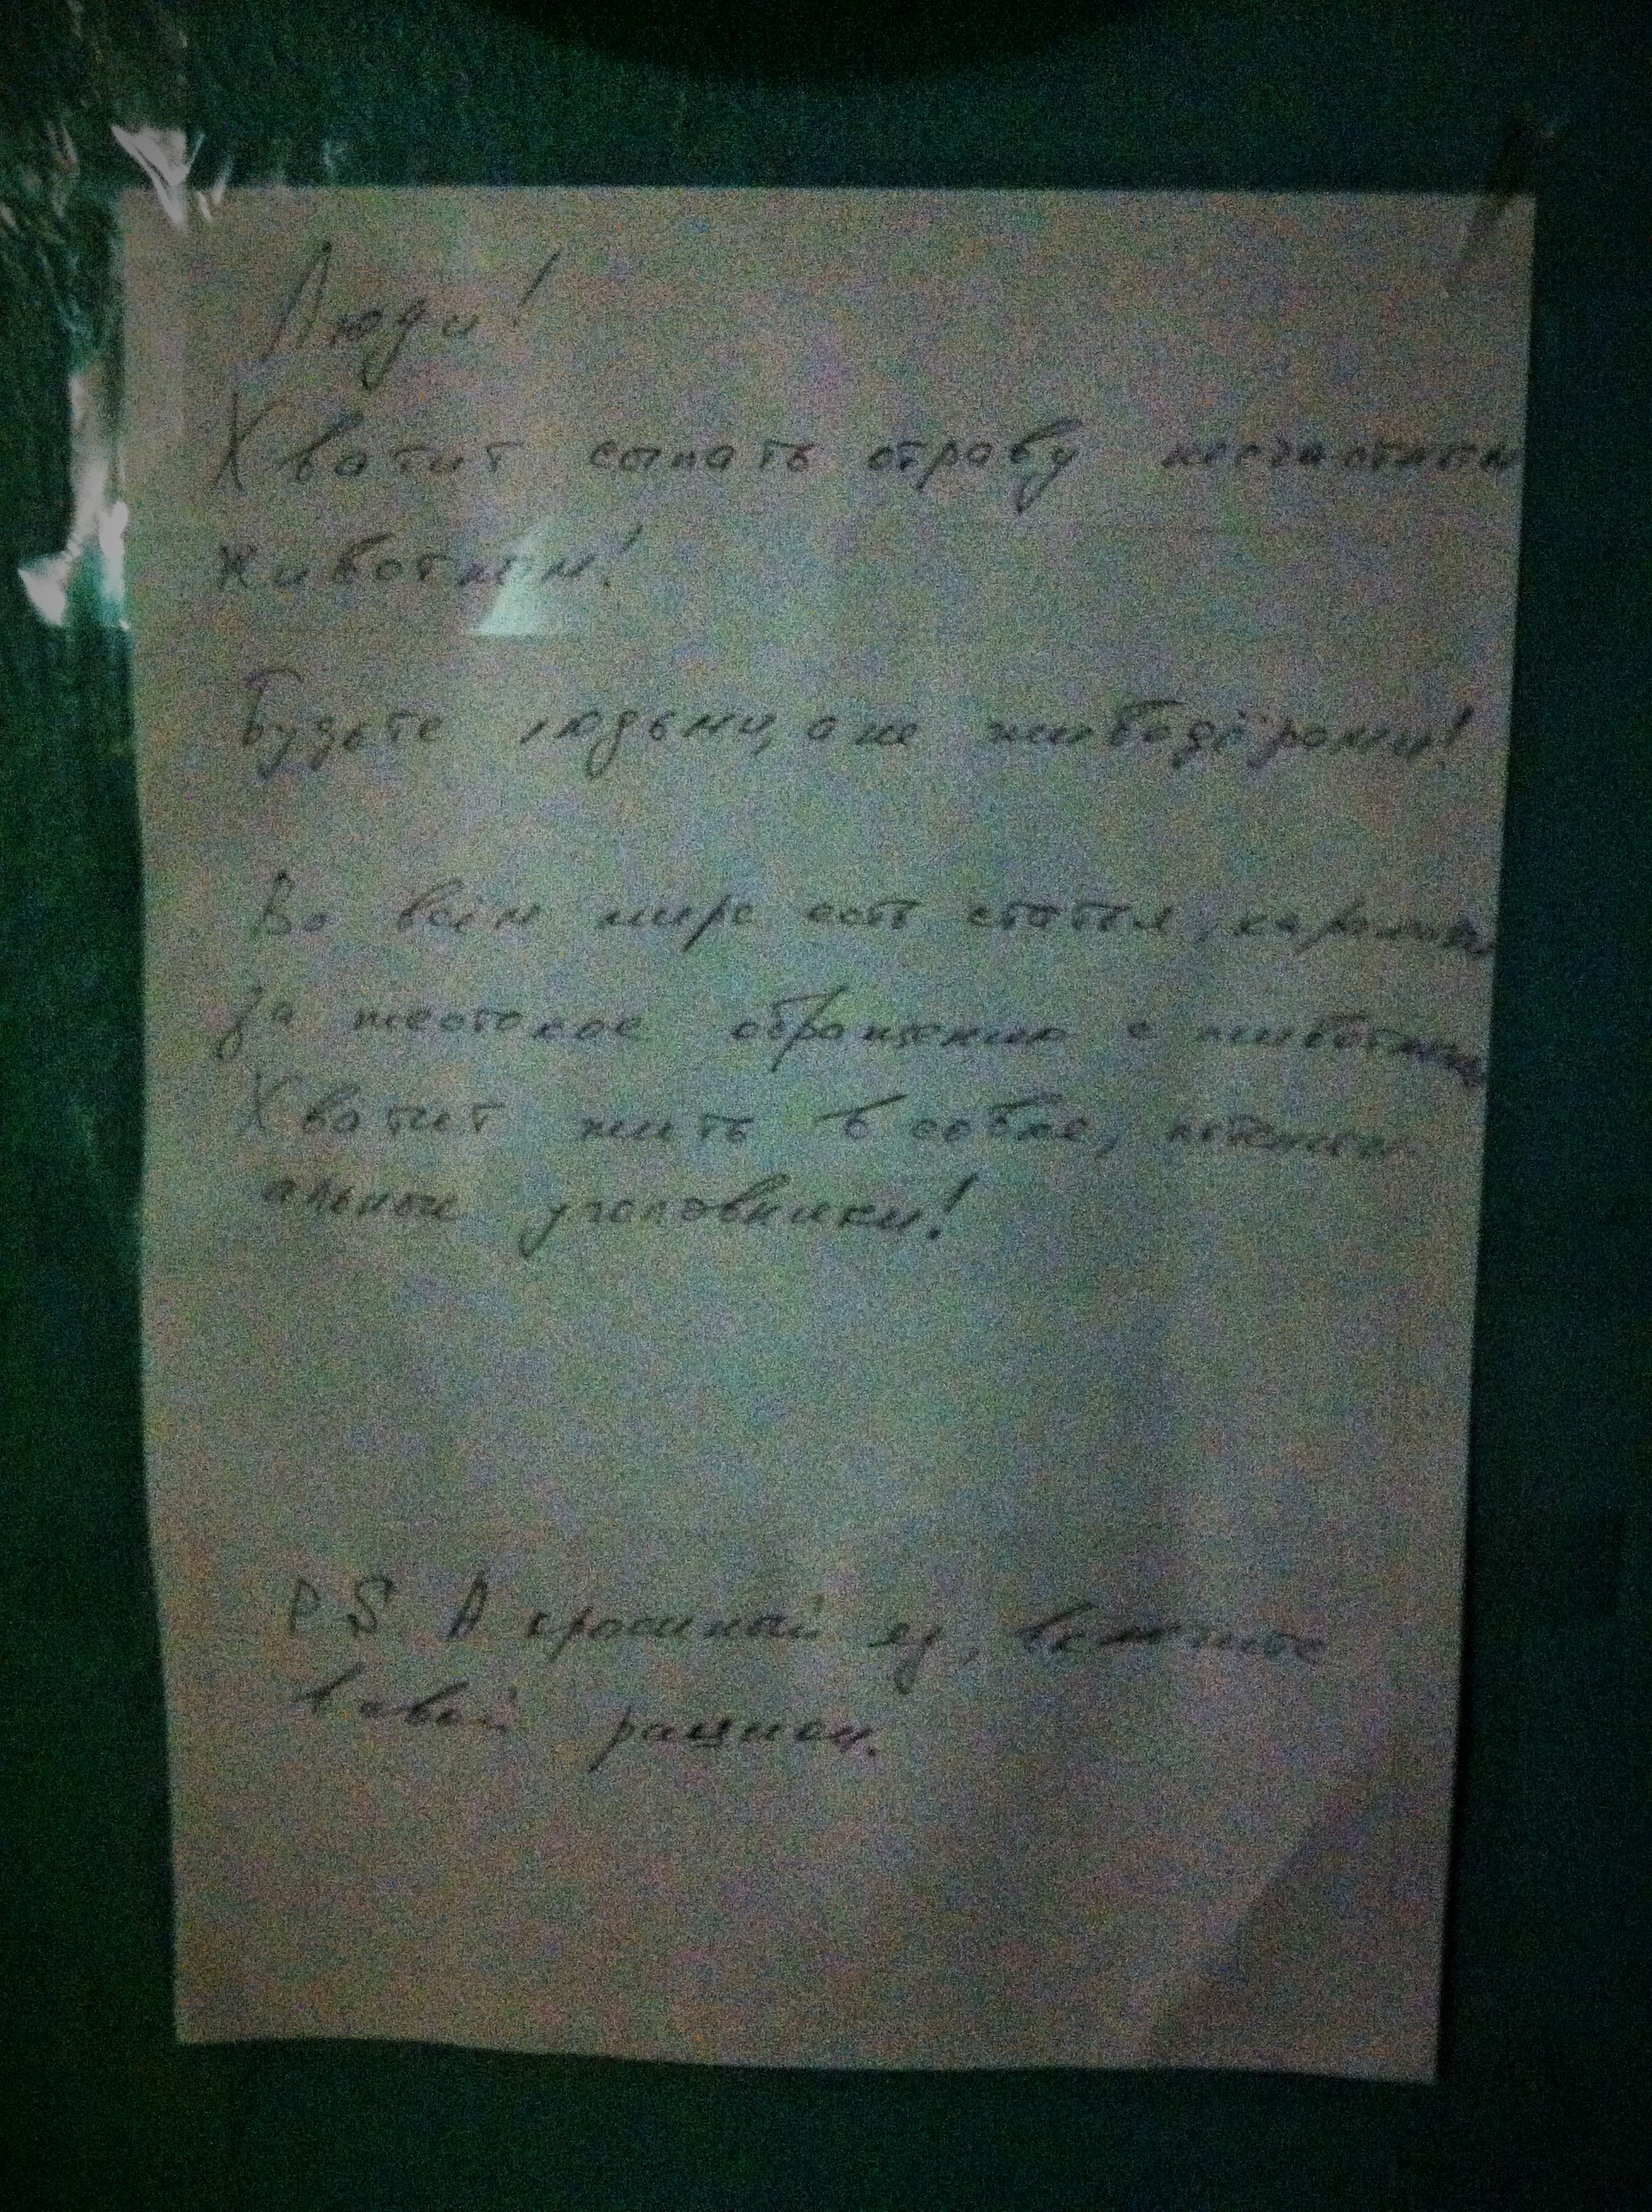 Люди!
Хватит сыпать отраву несчастным
животным!
Будьте людьми, а не живодёрами!
Во всём мире есть статья, карающая
за жестокое обращение с животными
Хватит жить в совке, потенци-
альные уголовники!
PS А крысиный яд, включите
в свой рацион.